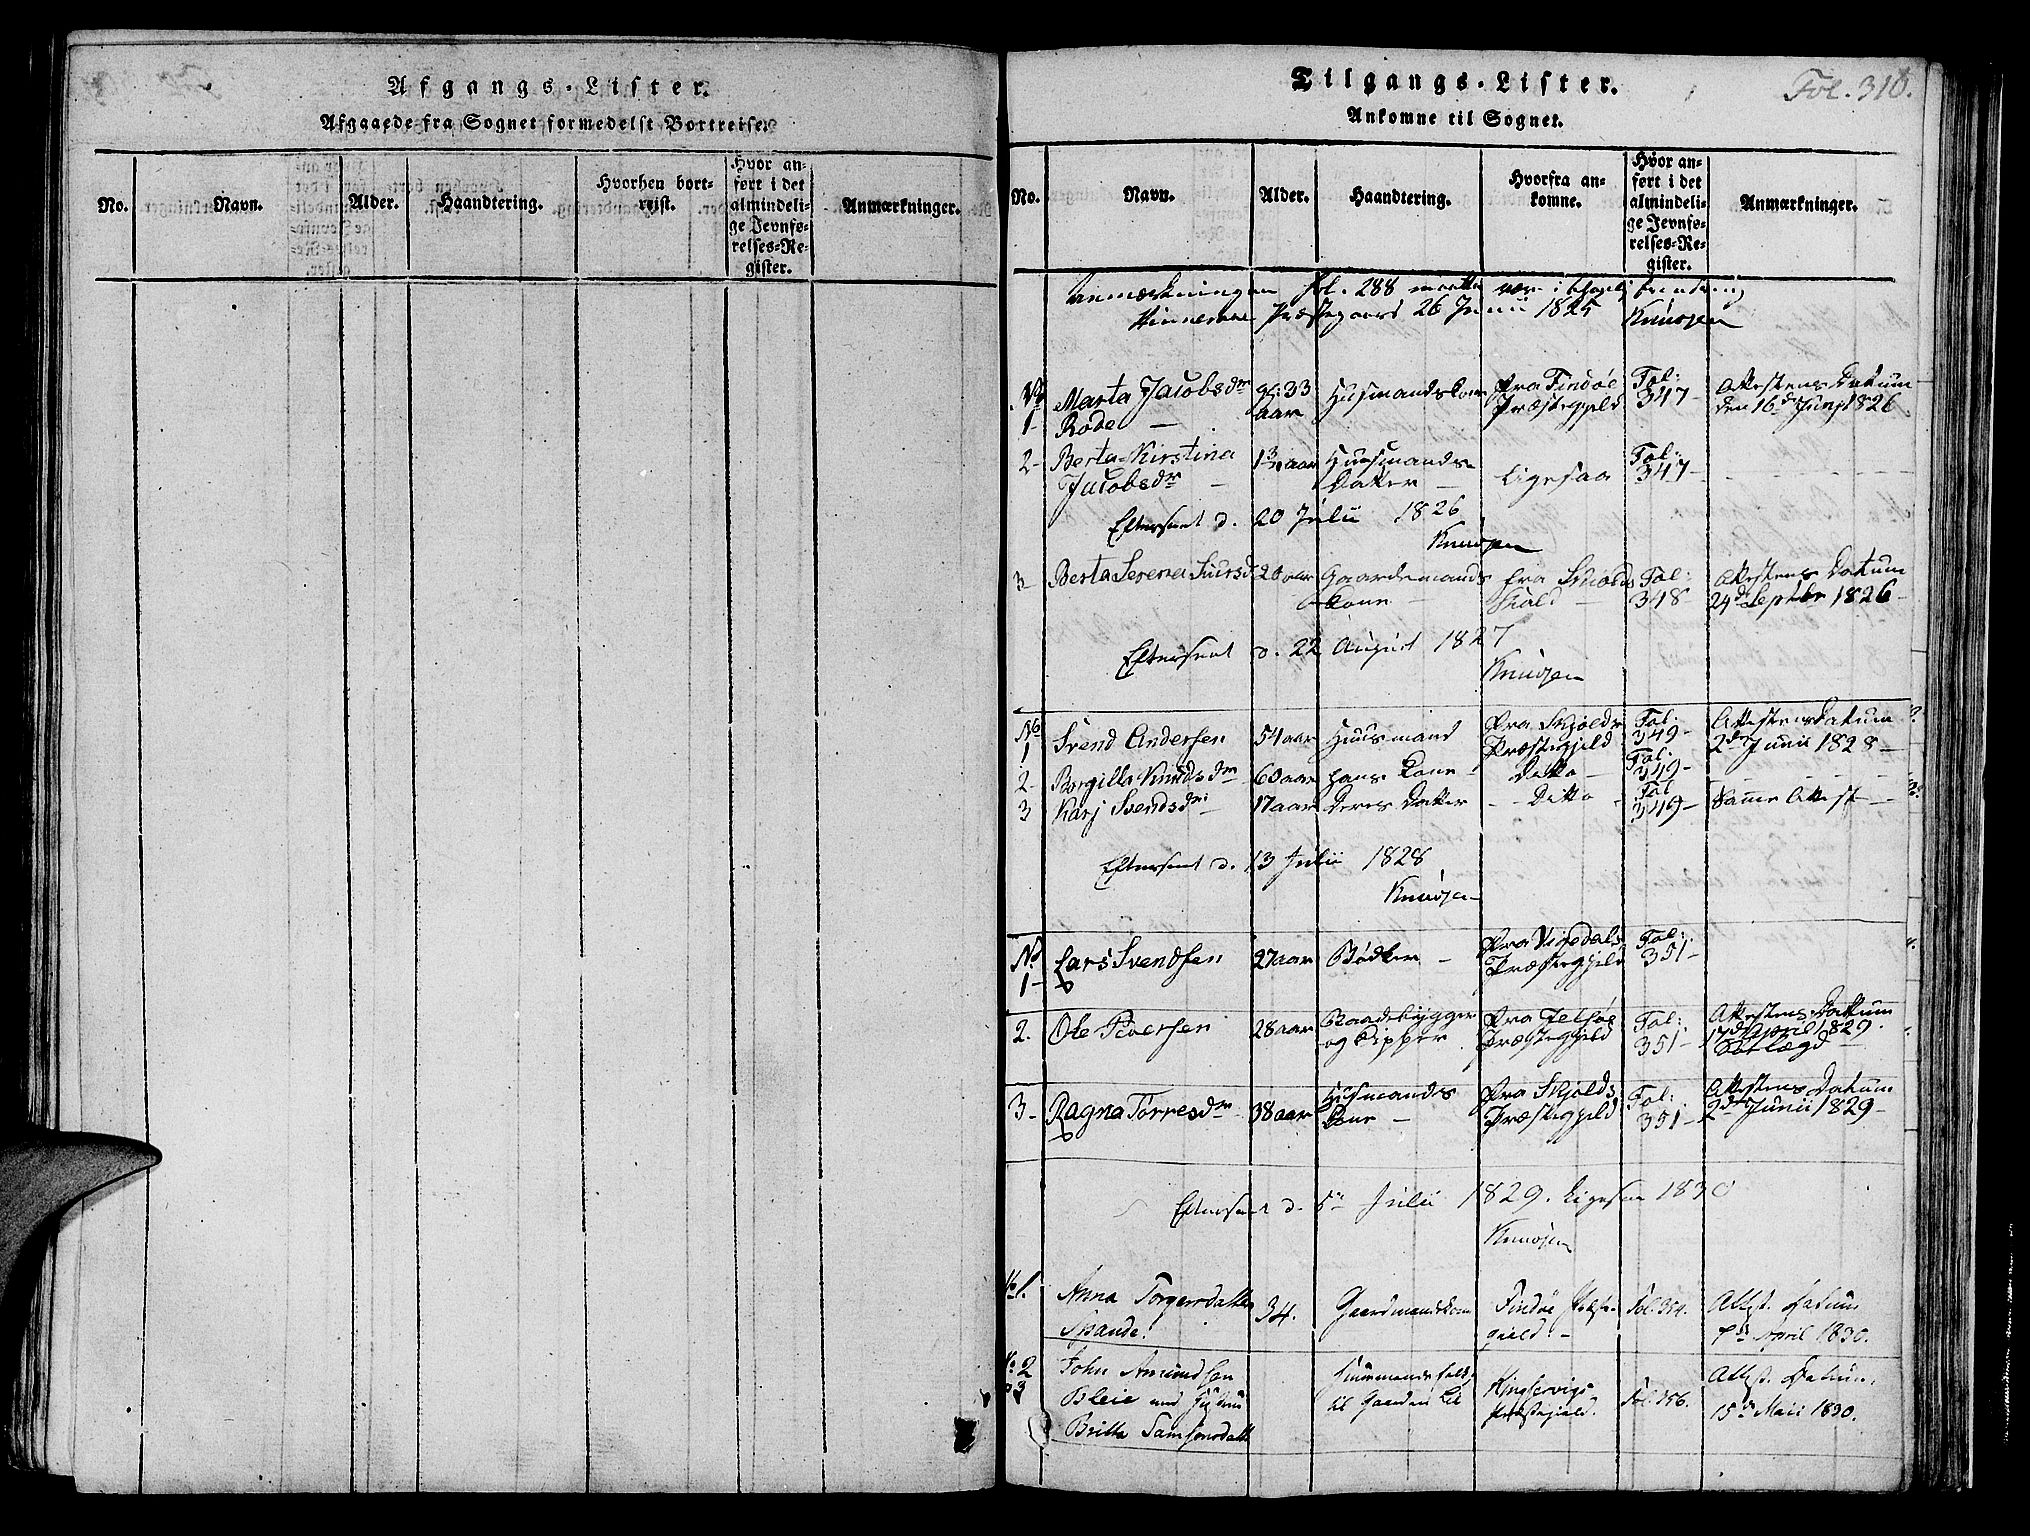 Afgangs-Lister.
Afgaaede fra Sognet formedelst Bortreise.
No.
Navn.
Alder.
Haandtering.
Hvorhen bort-
reist.
Hvor an-
ført i det
almindeli-
ge Jevnfø-
relses-Re-
gister.
Anmærkninger.
Tilgangs-Lister.
Fol. 310.
Ankomne til Sognet.
No.
Navn.
Alder.
Haandtering.
Hvorfra an-
komne.
Hvor an-
ført i det
almindeli-
ge Jevnfø-
relses-Re-
gister.
Anmærkninger.
Anmærkningen fol. 288 maatte
Præstegaard 26 Junii 1825 Knudsen
No 1- Marta Jacobsdr Rode - 33 aar Husmandskone Fra Findöe Præstegjeld Fol: 347- Attestens Datum den 16de Junj 1826
2- Berta Kirstina Jacobsdr - aar Huusmands Datter - Ligesaa Fol: 347-
Efterseet d. 20 Julii 1826
Knudsen
3 Berta Serena Siursd 20 aar Gaardemands Kone - fra Skiold Fol: 348- Attestens Datum 24de Septbr 1826-
Efterseet d. 22 August 1827
Knudsen
No 1 Svend Andersen 54 aar Huusmand Fra Skjolds Præstegjeld Fol: 349- Attestens Datum 2den Junii 1828-
2- Borgilla Knudsdr 60 aar hans Kone - Ditto - Fol: 349-
3 Karj Svendsdr 17 aar Deres Datter - Ditto - Fol 349- Samme Attest -
Efterseet d. 13 Julii 1828
Knudsen
No 1- Lars Svendsen 27 aar Bödker - Fra Vigedals Præstegjeld Fol: 351-
2. Ole Iversen 28 aar Baadebygger og Skipper Fra Jelsöe Præstegjeld Fol: 351- Attestens Dattum 17de April 1829.
3- Ragna Torresdr 38 aar Husmands Kone - Fra Skjolds Præstegjeld Fol: 351- Attestens Datum 2den Junii 1829-
Efterseet d. 5te Julii 1829. Ligesaa 1830
Knudsen
No 1. Anna Torgersdatter Spande. 34. Gaardmandskone Findöe Præstegield. - Fol. 354. Attest. Datum April 1830.
No 2 3 John Amundsen Bleie med Hustru Britta Samsonsdatt Huusmandsfolk til Gaarden Kingservigs Præstegield. Fol. 356. Attest. Datum, 15de Maii 1830.